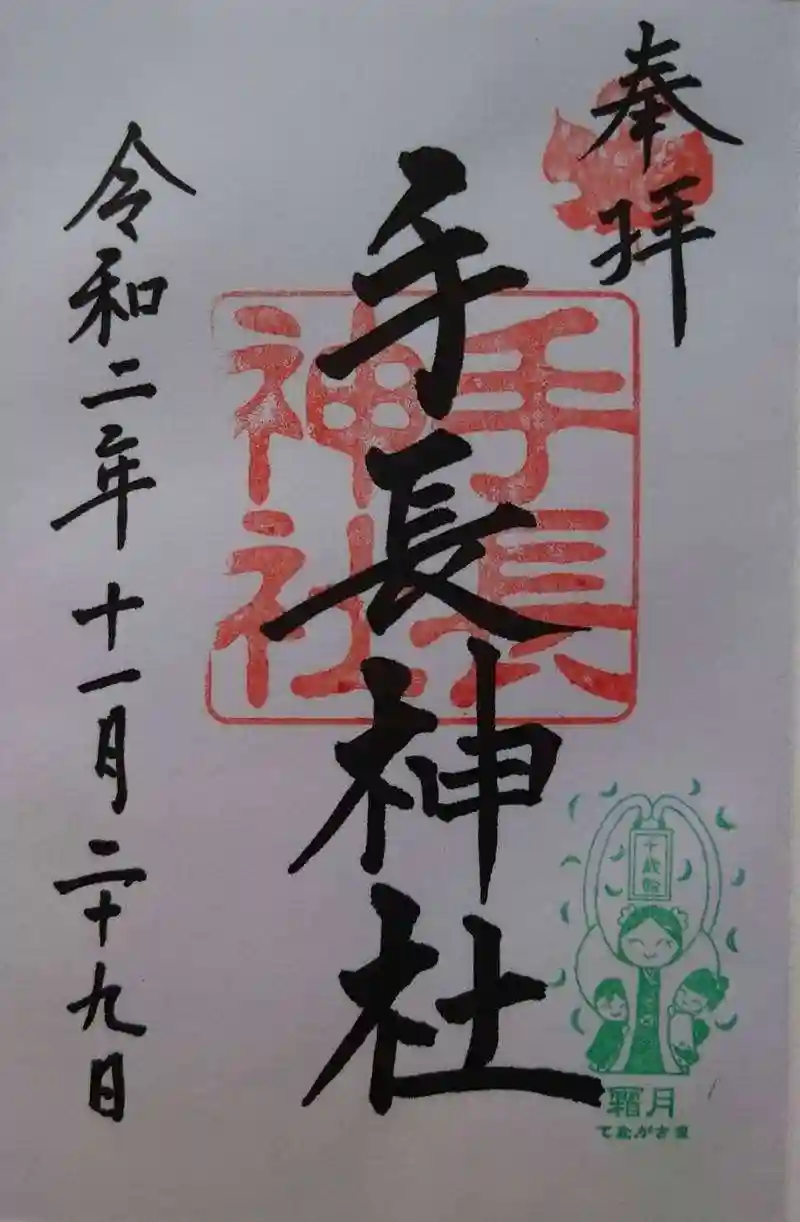 奉拝
手長神社
手長
神社
令和二年十一月二十九日
千歳飴
霜月